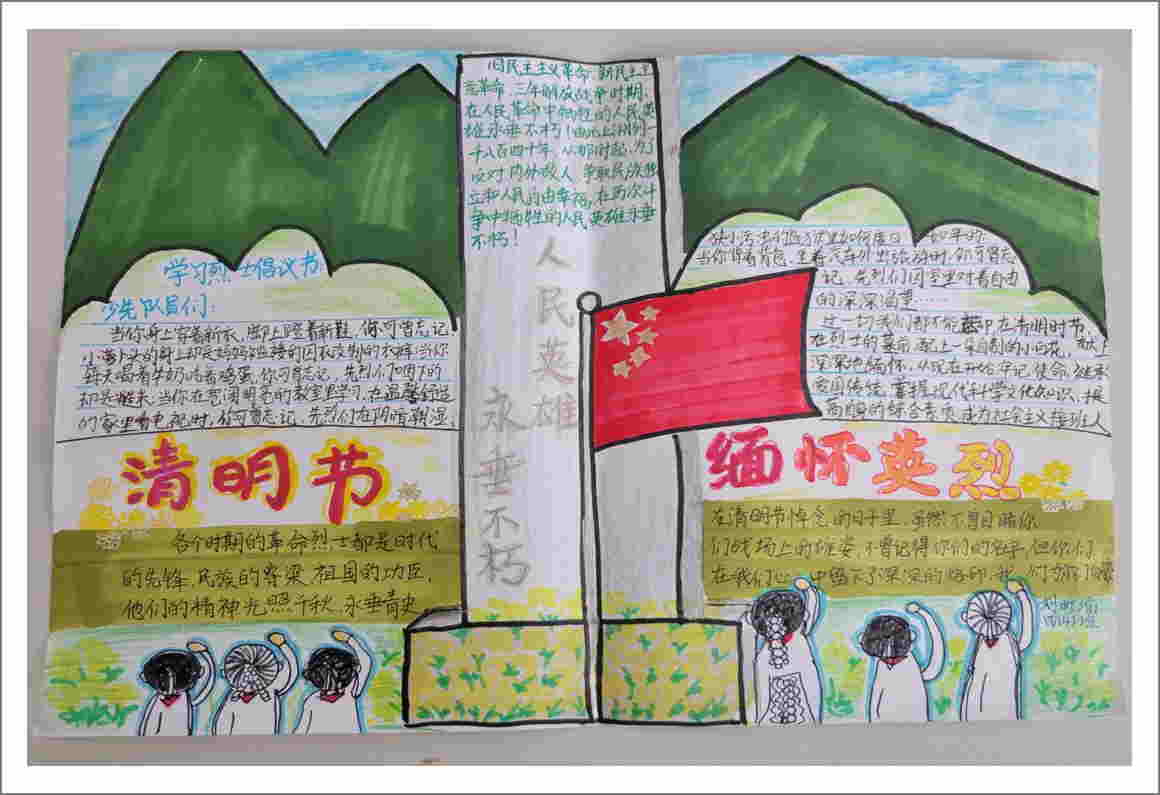 学习烈士倡议书
少先队员们：
当你身上穿着新衣，脚上蹬着新鞋，你可曾忘记，
小萝卜头的身上却是妈妈连接的囚衣改制的不鲜当你
每天喝着牛奶吃着鸡蛋，你可曾忘记，先烈们
却当你在宽阔明亮的教室里学习，在温馨舒适
的家里看电视时，你可曾忘记，先烈们在阴暗潮湿，
清明节
各个时期的革命烈士都是时代
的先锋，民族的脊梁，祖国的功臣，
他们的精神光照千秋，永垂青史。
旧民主主义革命，新民主主
义革命，三年解放战争时期，
在人民革命中牺牲的人民英
雄永垂不朽！由此上溯到一
千八百四十年，从那时起，为了
反对内外敌人，争取民族独
立和人民自由幸福，在历次斗
争中牺牲的人民英雄永垂
不朽！
人民英雄
永垂不朽
如年的
当你背着背包，坐着汽车外出旅游时，你可曾忘
记，先烈们囚室里对着自由
的深深渴望……
这一切我们都不能 在清明节，
在烈士的墓前，配上一朵自制的小白花，献上
深深地缅怀，从现在开始牢记使命，继承
爱国传统，掌握现代科学文化知识，提
高自身的综合素质，成为社会主义接班人
缅怀英烈
在清明节悼念的日子里，虽然不曾目睹你
们战场上的雄姿，不曾记得你们的名字，但你们
在我们心中留下了深深的烙印，我们为你们